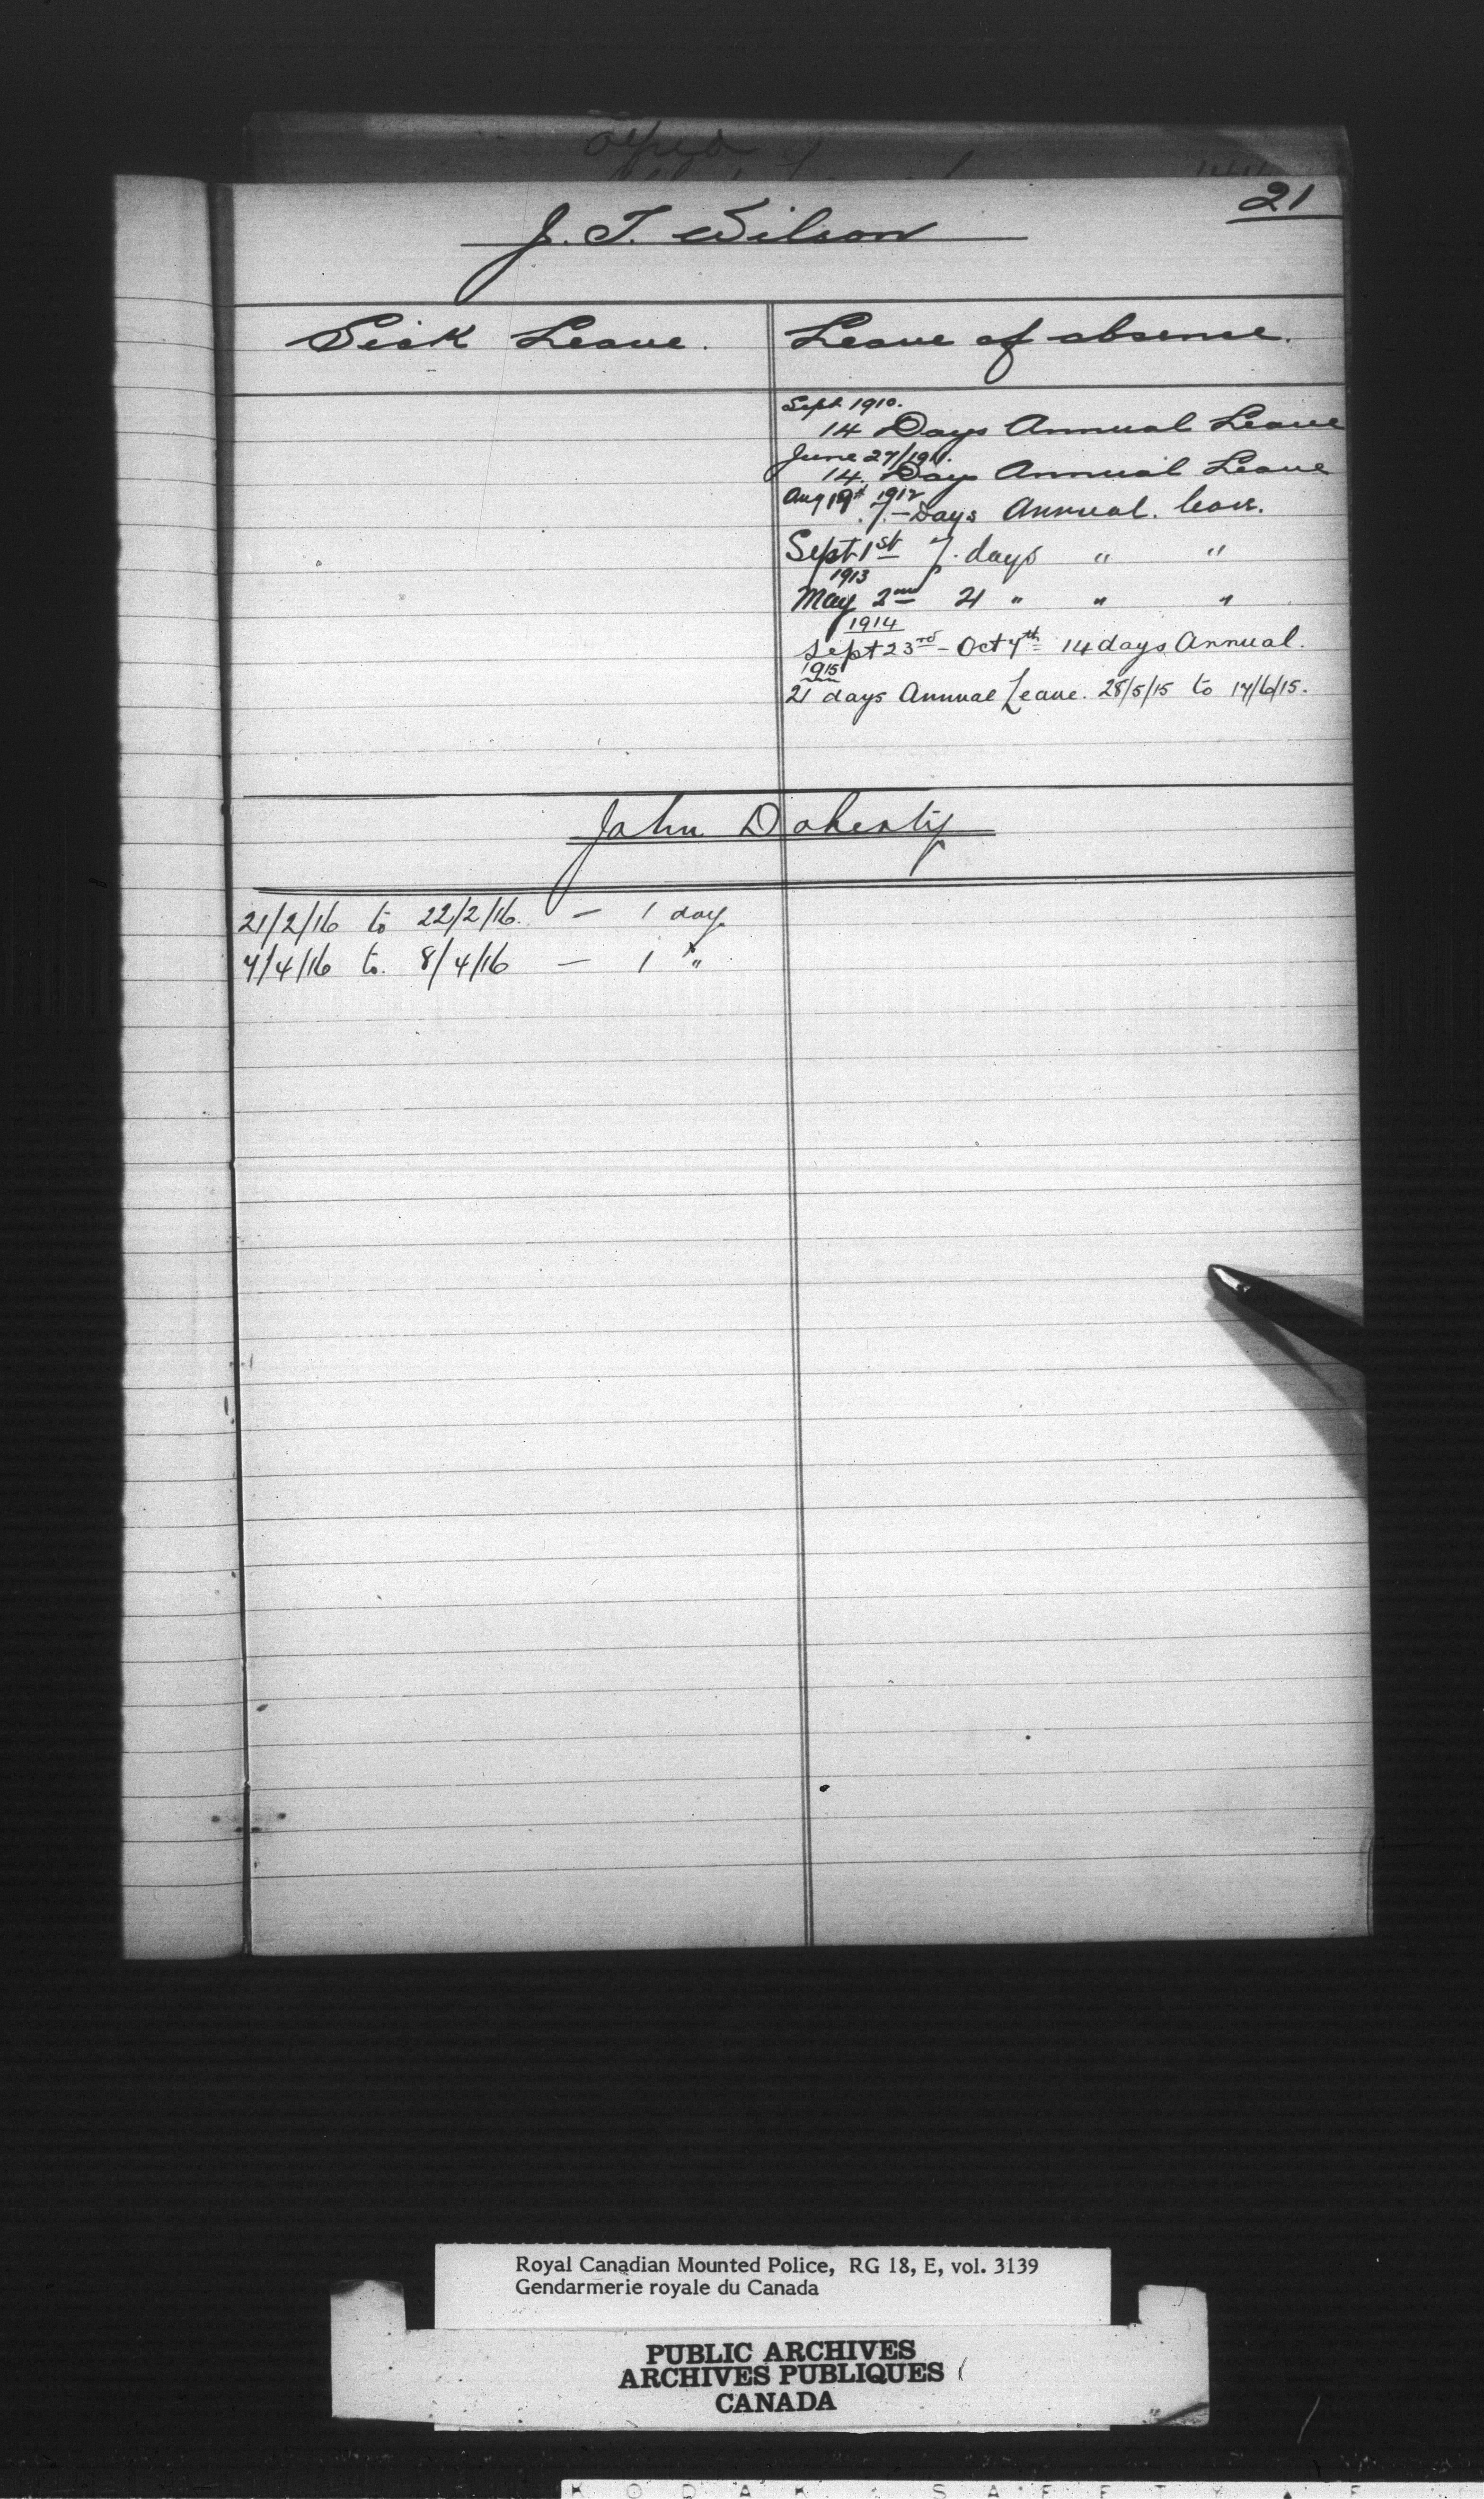 21
J. T. Wilson
Sick Leave. Leave of absence.
Sept 1910.
14 Days Annual Leave
June 27/1911.
14 Days Annual Leave
Aug 19th 1912
7 - Days Annual. leave.
Sept 1st 7. days " "
1913
May 2nd 21 " " "
1914
Sept 23rd - Oct 7th 14 days Annual.
1915
21 days Annual Leave. 28/5/15 to 17/6/15.
John Doherty
21/2/16 to 22/2/16. - 1 day
7/4/16 to. 8/4/16 - 1 "
Royal Canadian Mounted Police, RG 18, E, vol. 3139
Gendarmerie royale du Canada
PUBLIC ARCHIVES
ARCHIVES PUBLIQUES
CANADA
KODAK SAFETY